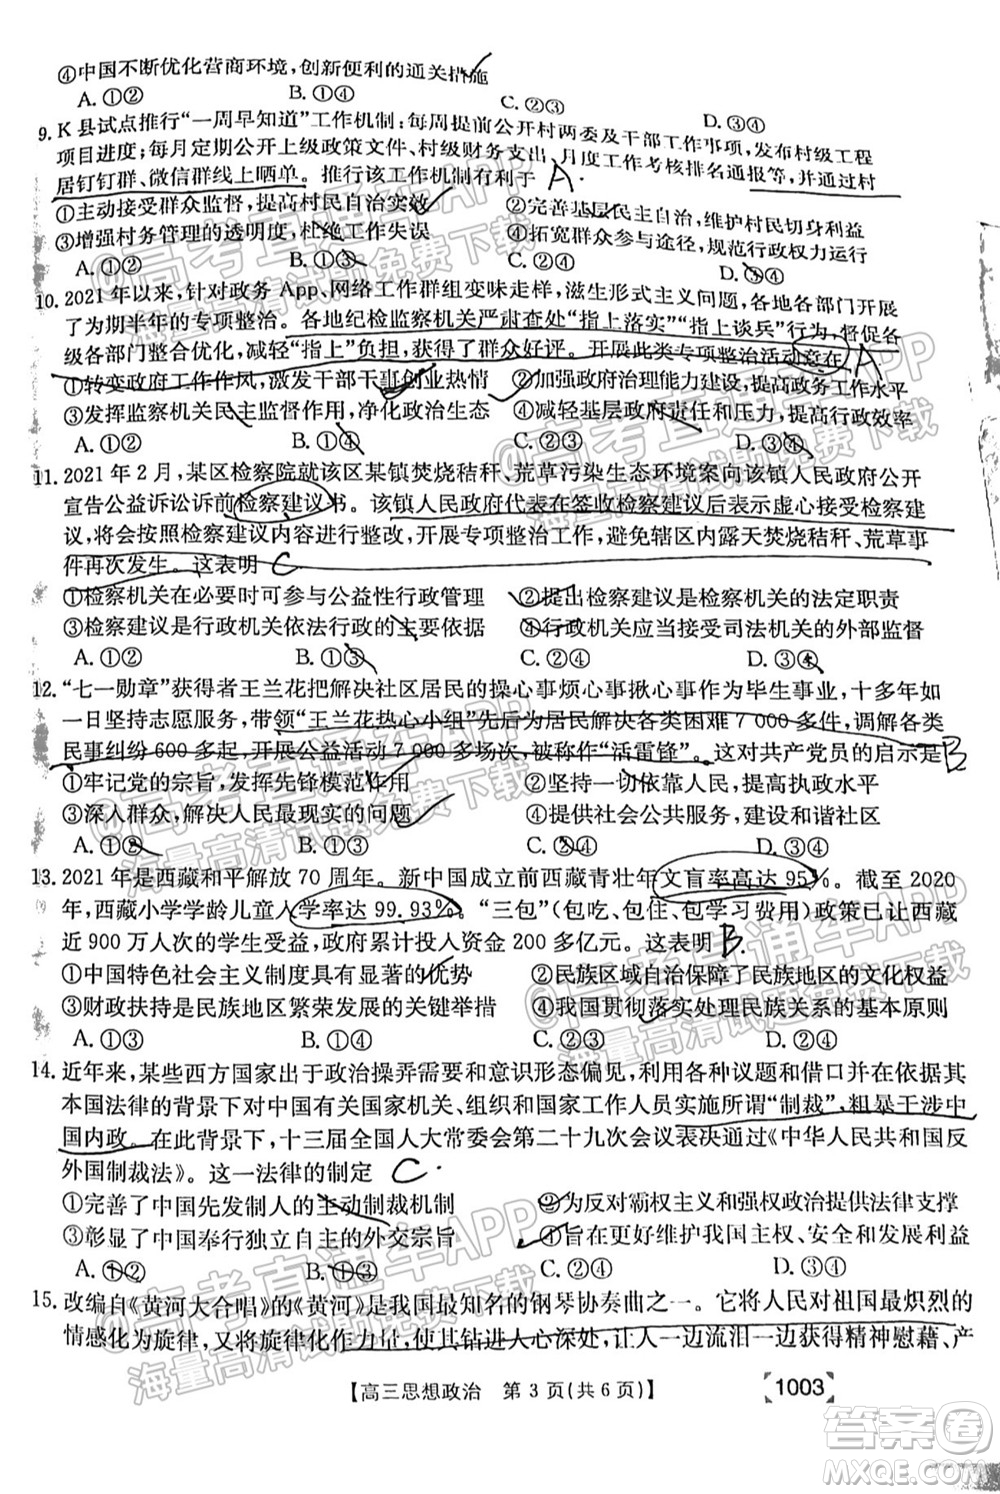 ④中国不断优化营商环境,创新便利的通关措施
A. ①② B. ①③ C. ②④ D. ③④
9. K县试点推行“一周早知道”工作机制:每周提前公开村两委及干部工作事项,发布村级工程
项目进度;每月定期公开上级政策文件、村级财务支出、月度工作考核排名通报等,并通过村
居钉钉群、微信群线上晒单。推行该工作机制有利于 A
①主动接受群众监督,提高村民自治实效 ②完善基层民主自治,维护村民切身利益
③增强村务管理的透明度,杜绝工作失误 ④拓宽群众参与途径,规范行政权力运行
A. ①② B. ①③ C. ②④ D. ③④
10. 2021年以来,针对政务App、网络工作群组变味走样,滋生形式主义问题,各地各部门开展
了为期半年的专项整治。各地纪检监察机关严肃查处“指上落实”“指上谈兵”行为,督促各
级各部门整合优化,减轻“指上”负担,获得了群众好评。开展此类专项整治活动意在 A
①转变政府工作作风,激发干部干事创业热情 ②加强政府治理能力建设,提高政务工作水平
③发挥监察机关民主监督作用,净化政治生态 ④减轻基层政府责任和压力,提高行政效率
A. ①② B. ①④ C. ②③ D. ③④
11. 2021年2月,某区检察院就该区某镇焚烧秸秆、荒草污染生态环境案向该镇人民政府公开
宣告公益诉讼诉前检察建议书。该镇人民政府代表在签收检察建议后表示虚心接受检察建
议,将会按照检察建议内容进行整改,开展专项整治工作,避免辖区内露天焚烧秸秆、荒草事
件再次发生。这表明 C
①检察机关在必要时可参与公益性行政管理 ②提出检察建议是检察机关的法定职责
③检察建议是行政机关依法行政的主要依据 ④行政机关应当接受司法机关的外部监督
A. ①② B. ①③ C. ②④ D. ③④
12. “七一勋章”获得者王兰花把解决社区居民的操心事烦心事揪心事作为毕生事业,十多年如
一日坚持志愿服务,带领“王兰花热心小组”先后为居民解决各类困难7 000多件,调解各类
民事纠纷600多起,开展公益活动7 000多场次,被称作“活雷锋”。这对共产党员的启示是 B
①牢记党的宗旨,发挥先锋模范作用 ②坚持一切依靠人民,提高执政水平
③深入群众,解决人民最现实的问题 ④积极参与社会治理,建设和谐社区
A. ①② B. ①③ C. ②④ D. ③④
13. 2021年是西藏和平解放70周年。新中国成立前西藏青壮年文盲率高达95%。截至2020
年,西藏小学学龄儿童入学率达99.93%。“三包”(包吃、包住、包学习费用)政策已让西藏
近900万人次的学生受益,政府累计投入资金200多亿元。这表明 B
①中国特色社会主义制度有显著的优势 ②民族区域自治保障了民族地区的文化权益
③财政扶持是民族地区繁荣发展的关键举措 ④我国贯彻落实处理民族关系的基本原则
A. ①③ B. ①④ C. ②③ D. ②④
14. 近年来,某些西方国家出于政治操弄需要和意识形态偏见,利用各种议题和借口并在所谓
本国法律的背景下对中国有关国家机关、组织和国家工作人员实施所谓“制裁”,粗暴干涉中
国内政。在此背景下,十三届全国人大常委会第二十九次会议表决通过《中华人民共和国反
外国制裁法》。这一法律的制定 C
①完善了中国先发制人的主动制裁机制 ②为反对霸权主义和强权政治提供法律支撑
③彰显了中国奉行独立自主的外交宗旨 ④旨在更好维护我国主权、安全和发展利益
A. ①② B. ①③ C. ②④ D. ③④
15. 改编自《黄河大合唱》的《黄河》是我国最知名的钢琴协奏曲之一。它将人民对祖国最炽烈的
情感化为旋律,又将旋律化作力量,使其钻进人心深处,让人一边流泪一边获得精神慰藉、产
【高三思想政治 第3页(共6页)】 1003
@高考直通车APP
海量高清试题免费下载
答案卷
MXQE.COM